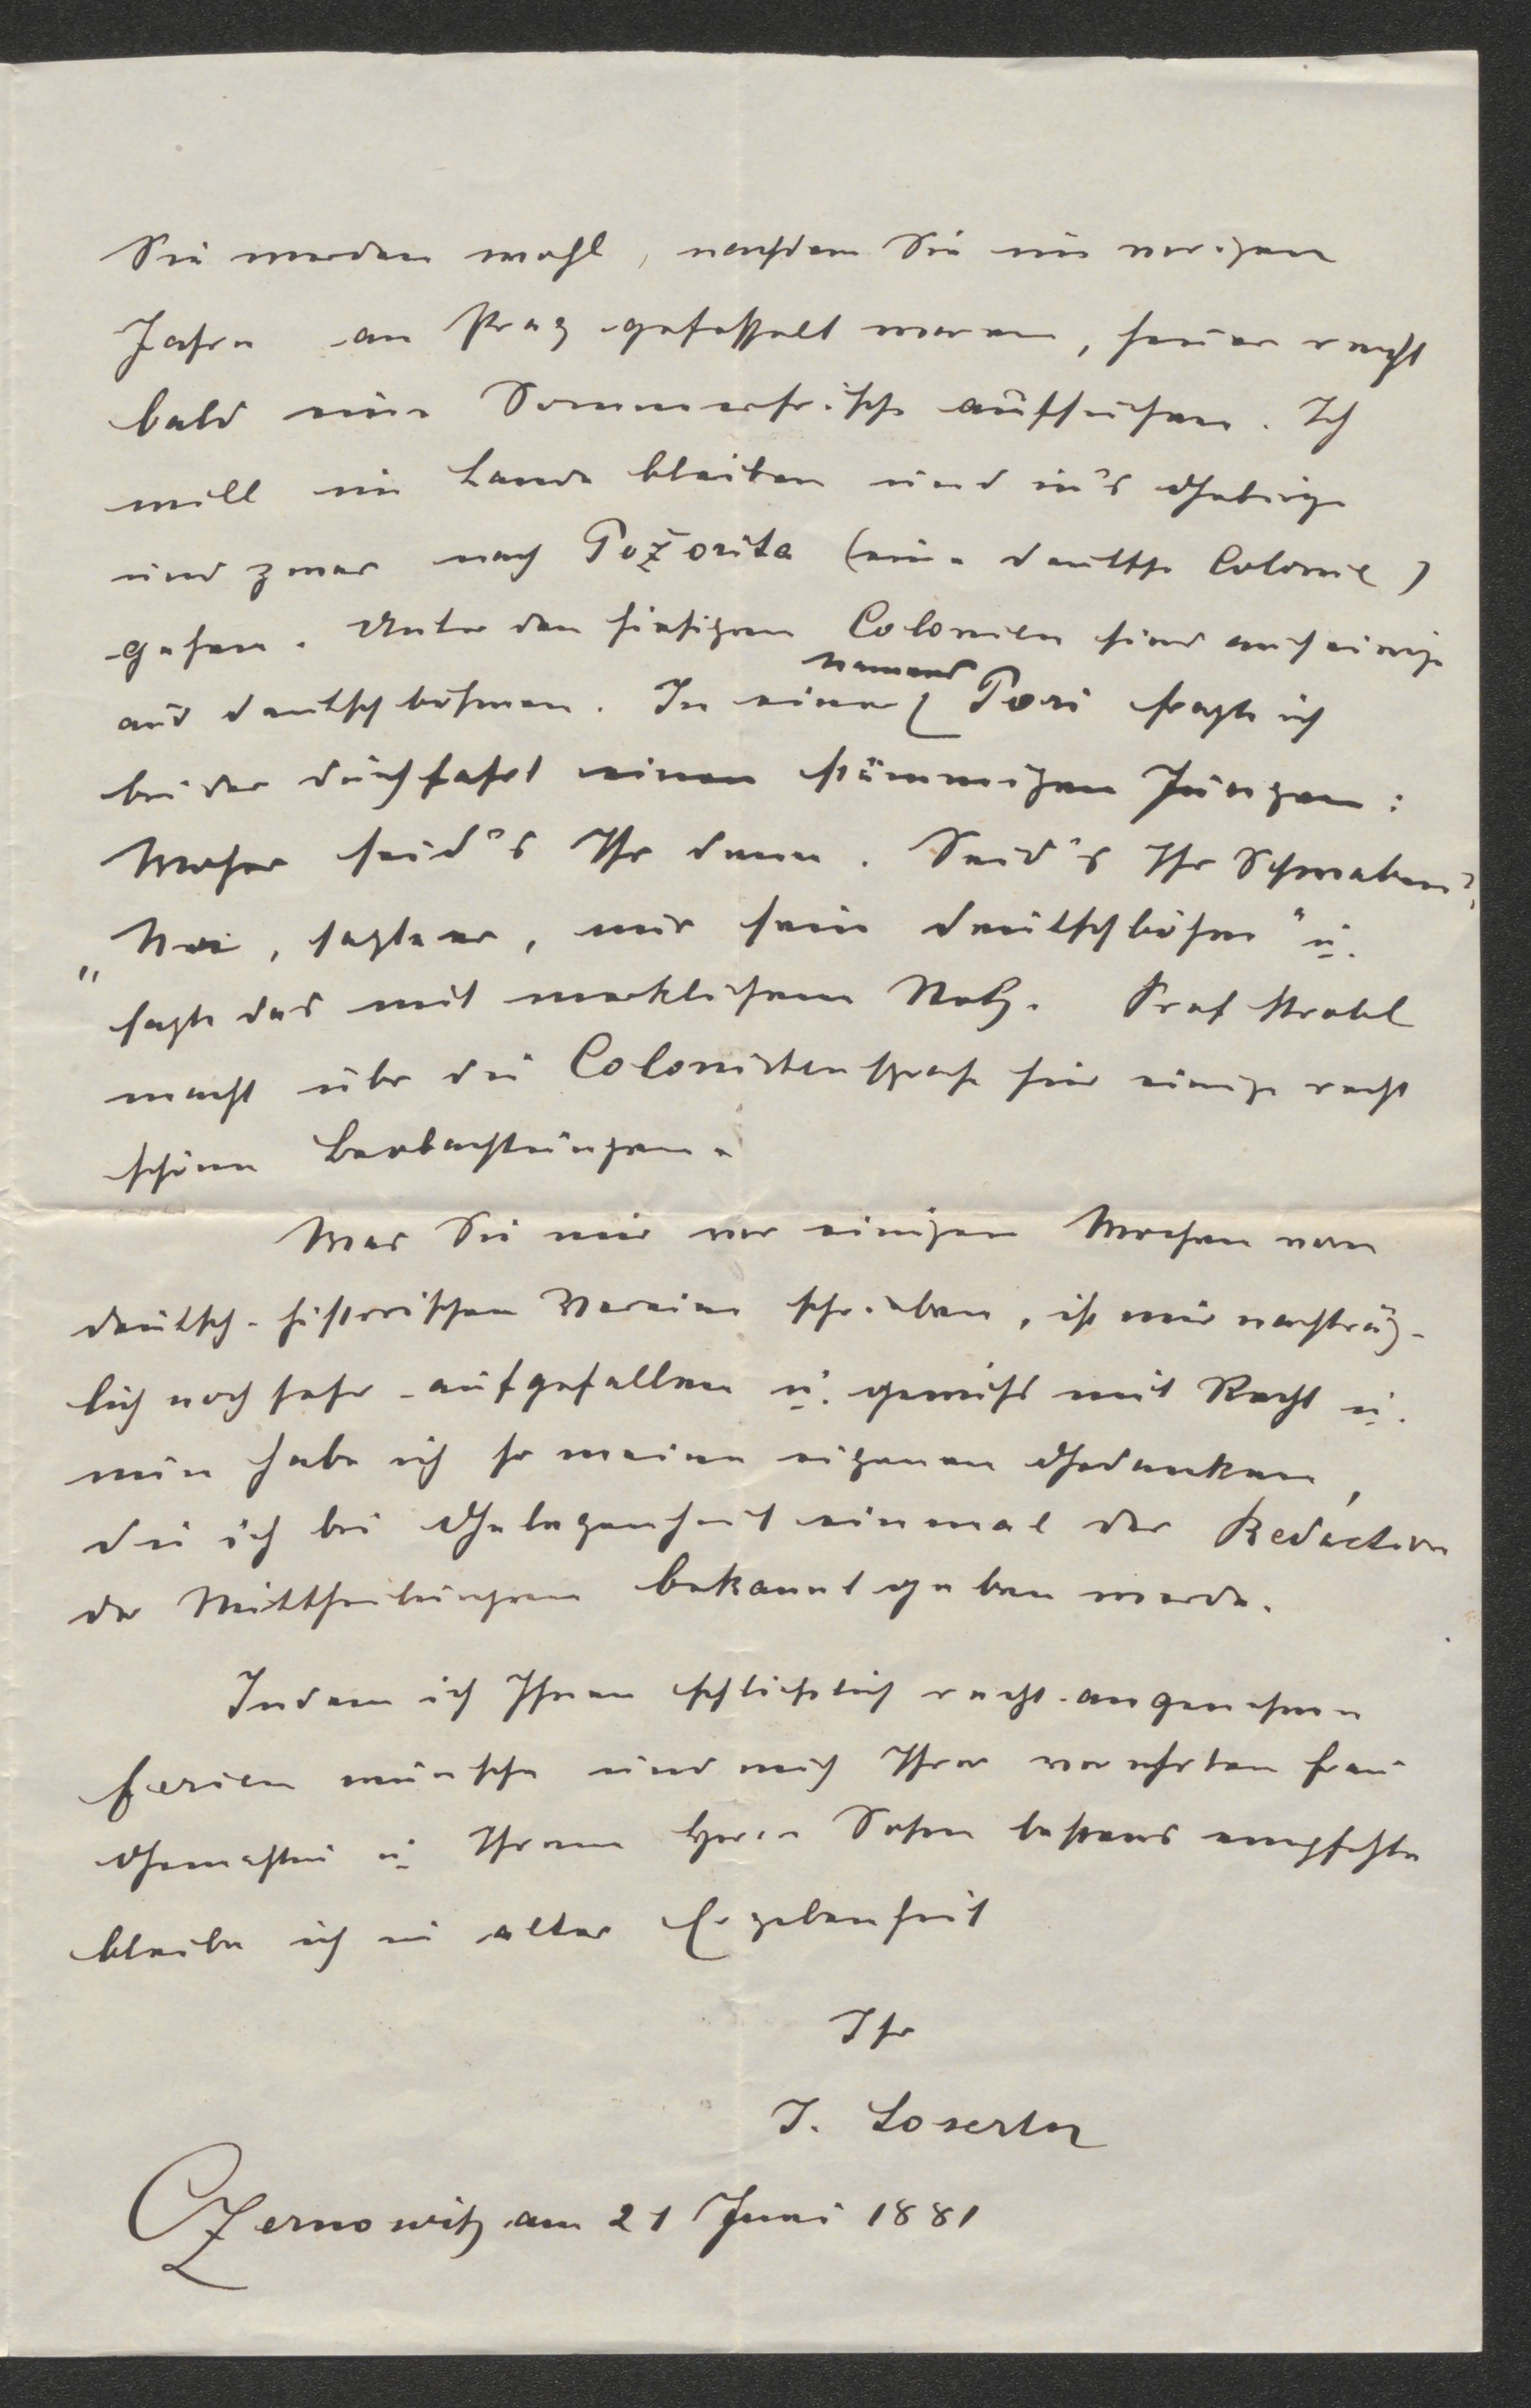 Sie werden wohl, nachdem Sie im vorigen
Jahre an Prag gefesselt waren, heuer recht
bald eine Sommerfrische aufsuchen. Ich
will im Lande bleiben und in's Gebirge
und zwar nach Požorita (eine deutsche Colonie)
gehen. Unter den hiesigen Colonien sind auch einige
aus Deutschböhmen. In einer namens Pori fragte ich
bei der Durchfahrt einen stämmigen Jungen:
Woher seid's Ihr denn. Seid's Ihr Schwaben?
"Noi, sagte er, mir sein Deutschböhm" u.
sagte das mit merklichem Stolz. Prof Strobl
macht über die Colonistensprache hier einige recht
schöne Beobachtungen.
Was Sie mir vor einigen Wochen vom
deutsch-historischen Vereine schrieben, ist mir nachträg-
lich noch sehr aufgefallen u. gewiss mit Recht u.
nun habe ich so meine eigenen Gedanken,
die ich bei Gelegenheit einmal der Redaction
der Mittheilungen bekannt geben werde.
Indem ich Ihnen schließlich recht angenehme
Ferien wünsche und mich Ihrer verehrten Frau
Gemahlin u. Ihrem Herrn Sohn bestens empfehle
bleibe ich in alter Ergebenheit
Ihr
J. Loserth
Czernowitz am 21 Juni 1881